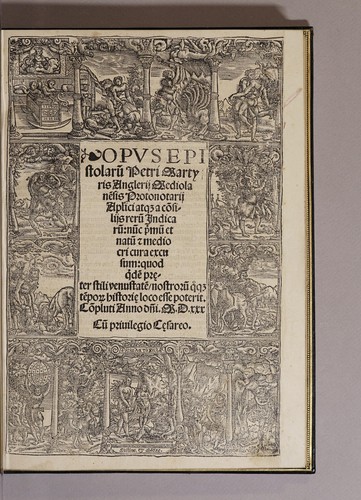 OPVS EPI
stolarũ Petri Marty
ris Anglerij Mediola
nẽsis Protonotarij
Aplici atqȝ a cõsi-
lijs rerũ Indica
rũ: nũc p̃mũ et
natũ ⁊ medio
cri cura excu
sum: quod
q̃dẽ prę
ter stili venustatẽ / nostrorũ qqȝ
tẽporꝝ historię loco esse poterit.
Cõpluti Anno dñi. M.D.xxx
Cũ priuilegio Cęsareo.